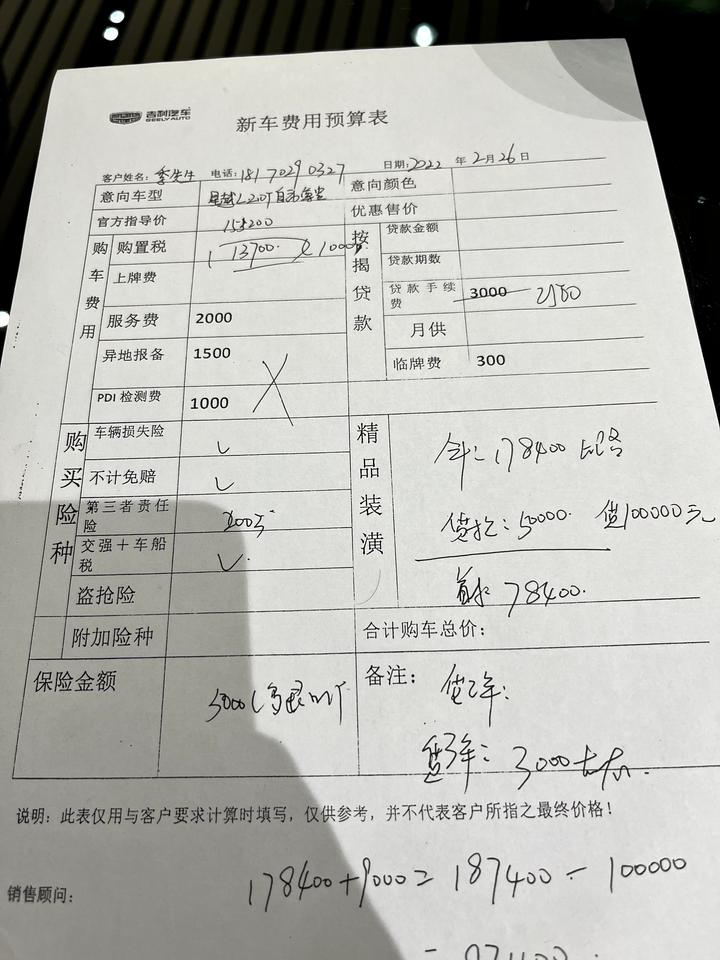 吉利汽车
GEELY AUTO
新车费用预算表
客户姓名： 李先生 电话：181 7029 0327 日期：2022 年 2 月 26 日
意向车型 星越L 2.0T自动 意向颜色
官方指导价 优惠售价
购车费用 购置税 13700. 按揭贷款 贷款金额
上牌费 贷款期数
服务费 2000 贷款手续费 3000 2980
月供
异地报备 1500 临牌费 300
PDI 检测费 1000
购买险种 车辆损失险 精品装潢
不计免赔 178400
第三者责任险 200万
交强＋车船税 50000. 贷100000元
盗抢险 首付 78400.
附加险种 合计购车总价：
保险金额 5000 备注： 贷2年：
贷3年： 3000左右.
说明：此表仅用与客户要求计算时填写，仅供参考，并不代表客户所指之最终价格！
销售顾问： 178400+9000= 187400 - 100000